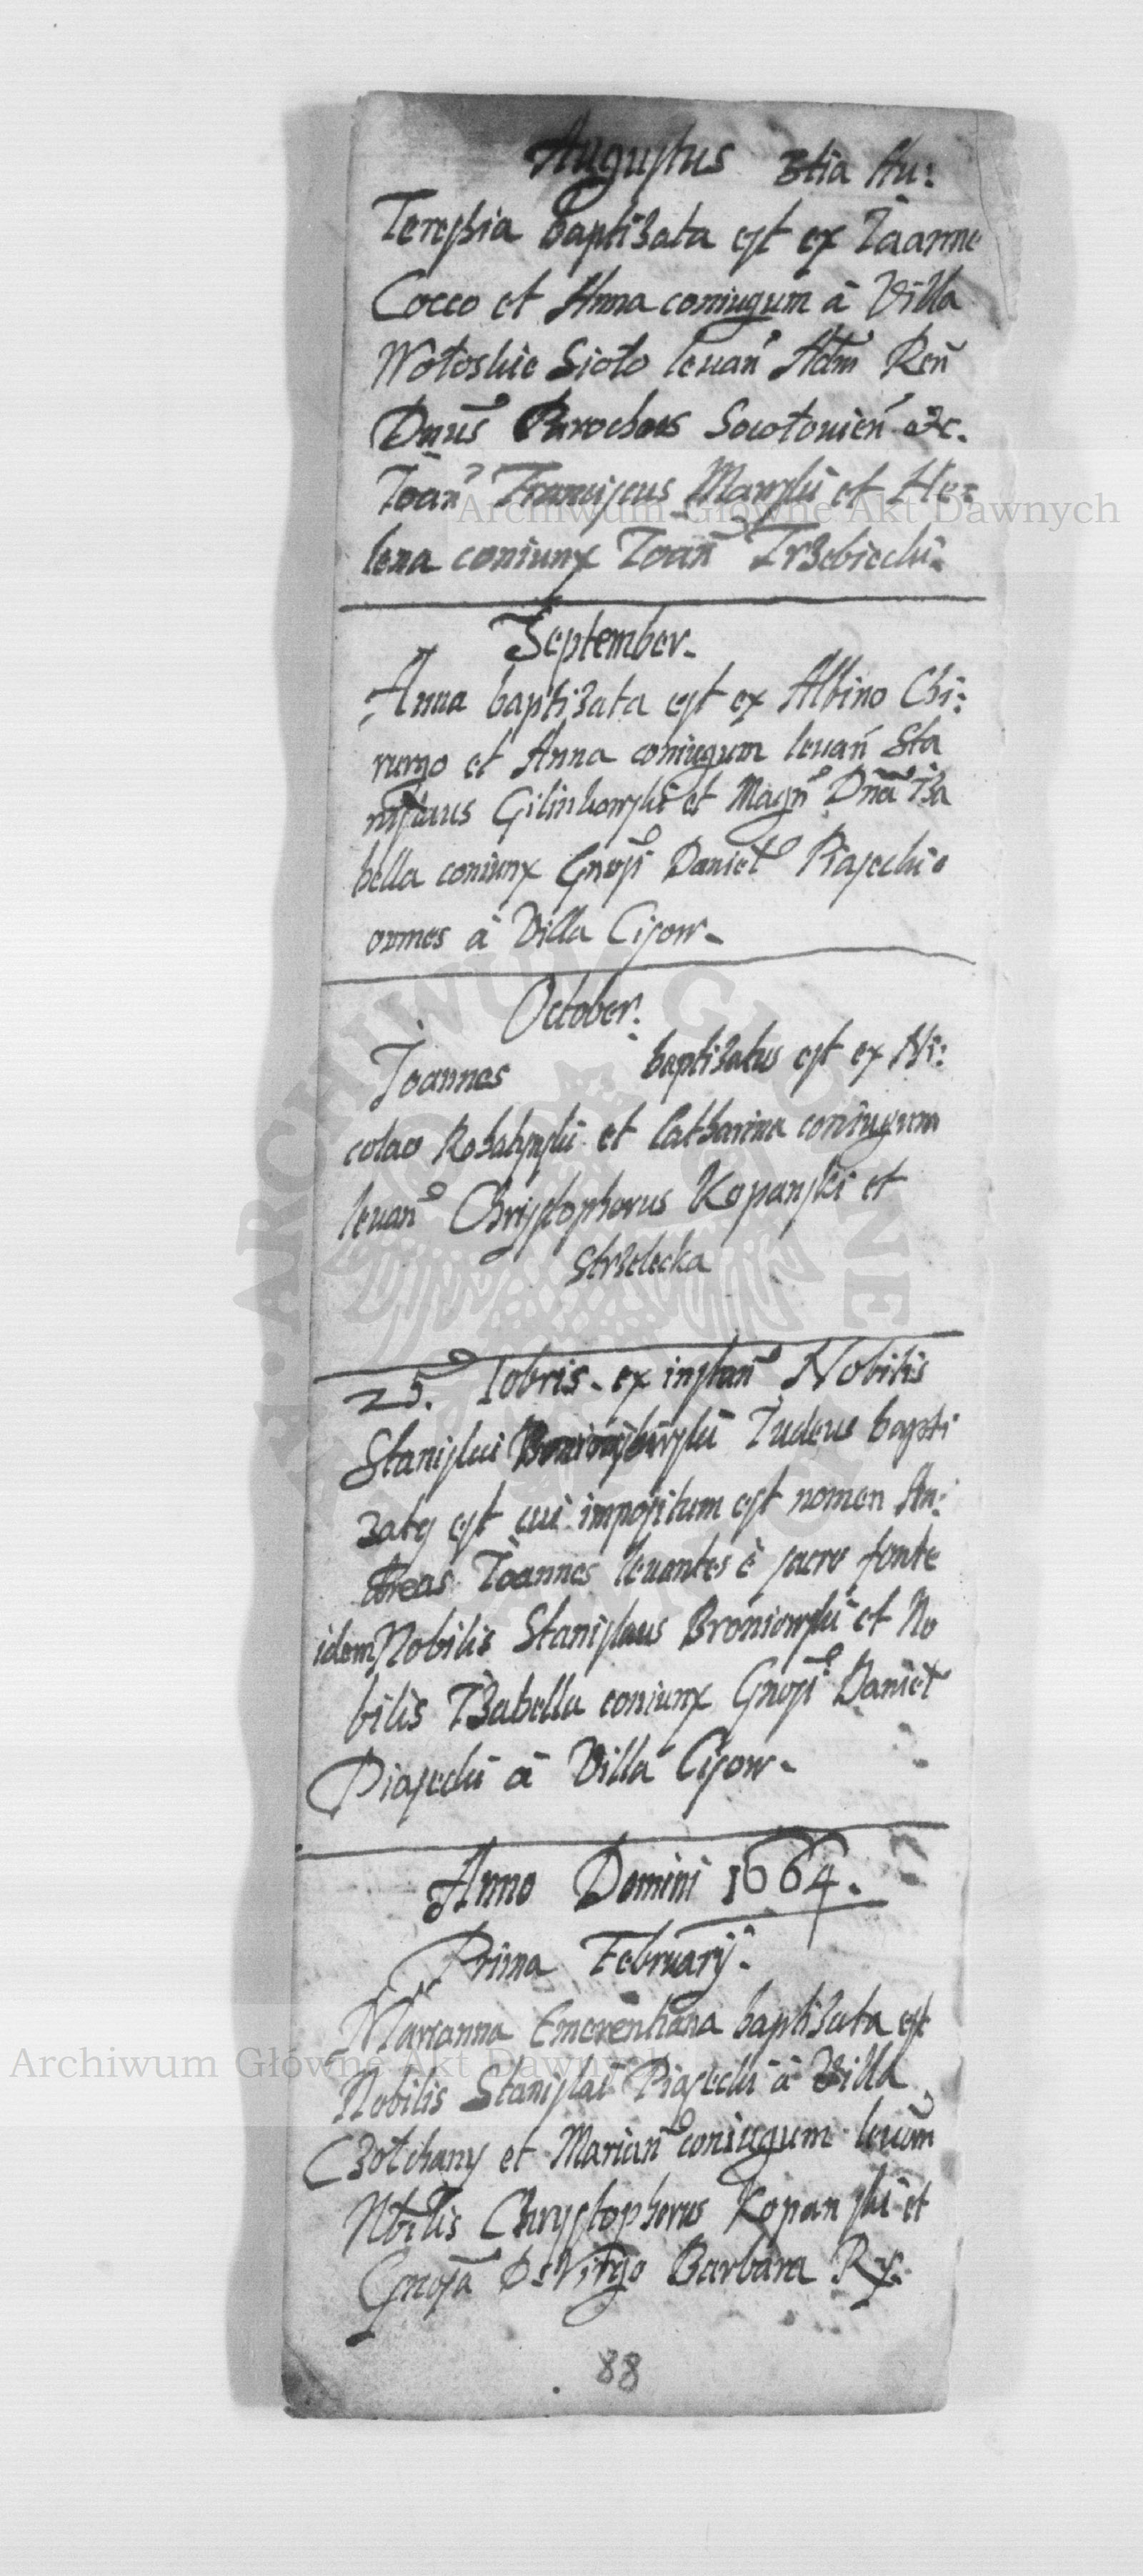 Augustus 3tia Au:
Teressia baptisata est ex Joanne
Cocco et Anna coniugum à Villa
Wołoskie Sioło levań Adm̃ Reñ
Dnus̃ Parochus Socołovień &c.
Joañ Franciscus Manski et He:
lena coniunx Joañ Trzebiecki.
September.
Anna baptizata est ex Albino Chi:
rurgo et Anna coniugum levań Sta
nislaus Gilinkowski et Magñ Dña Iza
bella coniunx Gnosi Danieł Piasecki
omnes à Villa Cisow.
October.
Joannes baptizatus est ex Ni:
colao et Catharina coniugum
levañ Christophorus Kopanski et
Strzelecka
25. 10bris. ex instañ Nobilis
Stanislai Judeus bapti
zatq est cui impositum est nomen An:
dreas Joannes levantes è sacro fonte
idem Nobilis Stanislaus Broniowski et No
bilis Izabella coniunx Gnosi Danieł
Piasecki à Villa Cisow.
Anno Domini 1664.
Prima Februarij.
Marianna Emerentiana baptizata est
Nobilis Stanislai Piasecki à Villa
Czołchany et Mariañ coniugum levãn
Nbilis Christophorus Kopanski et
Gnosã Virgo Barbara
88
Archiwum Główne Akt Dawnych
Archiwum Główne Akt Dawnych
ARCHIWUM GŁÓWNE AKT DAWNYCH